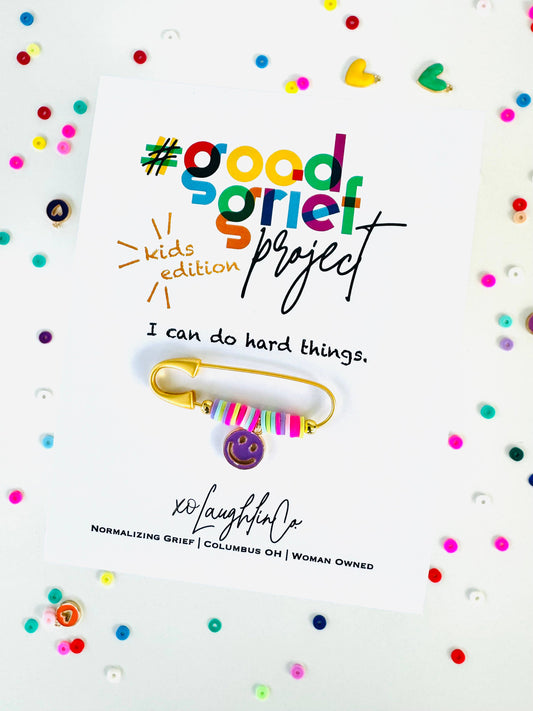 #good
grief
project
kids
edition
I can do hard things.
xo LaughlinCo.
Normalizing Grief | Columbus OH | Woman Owned